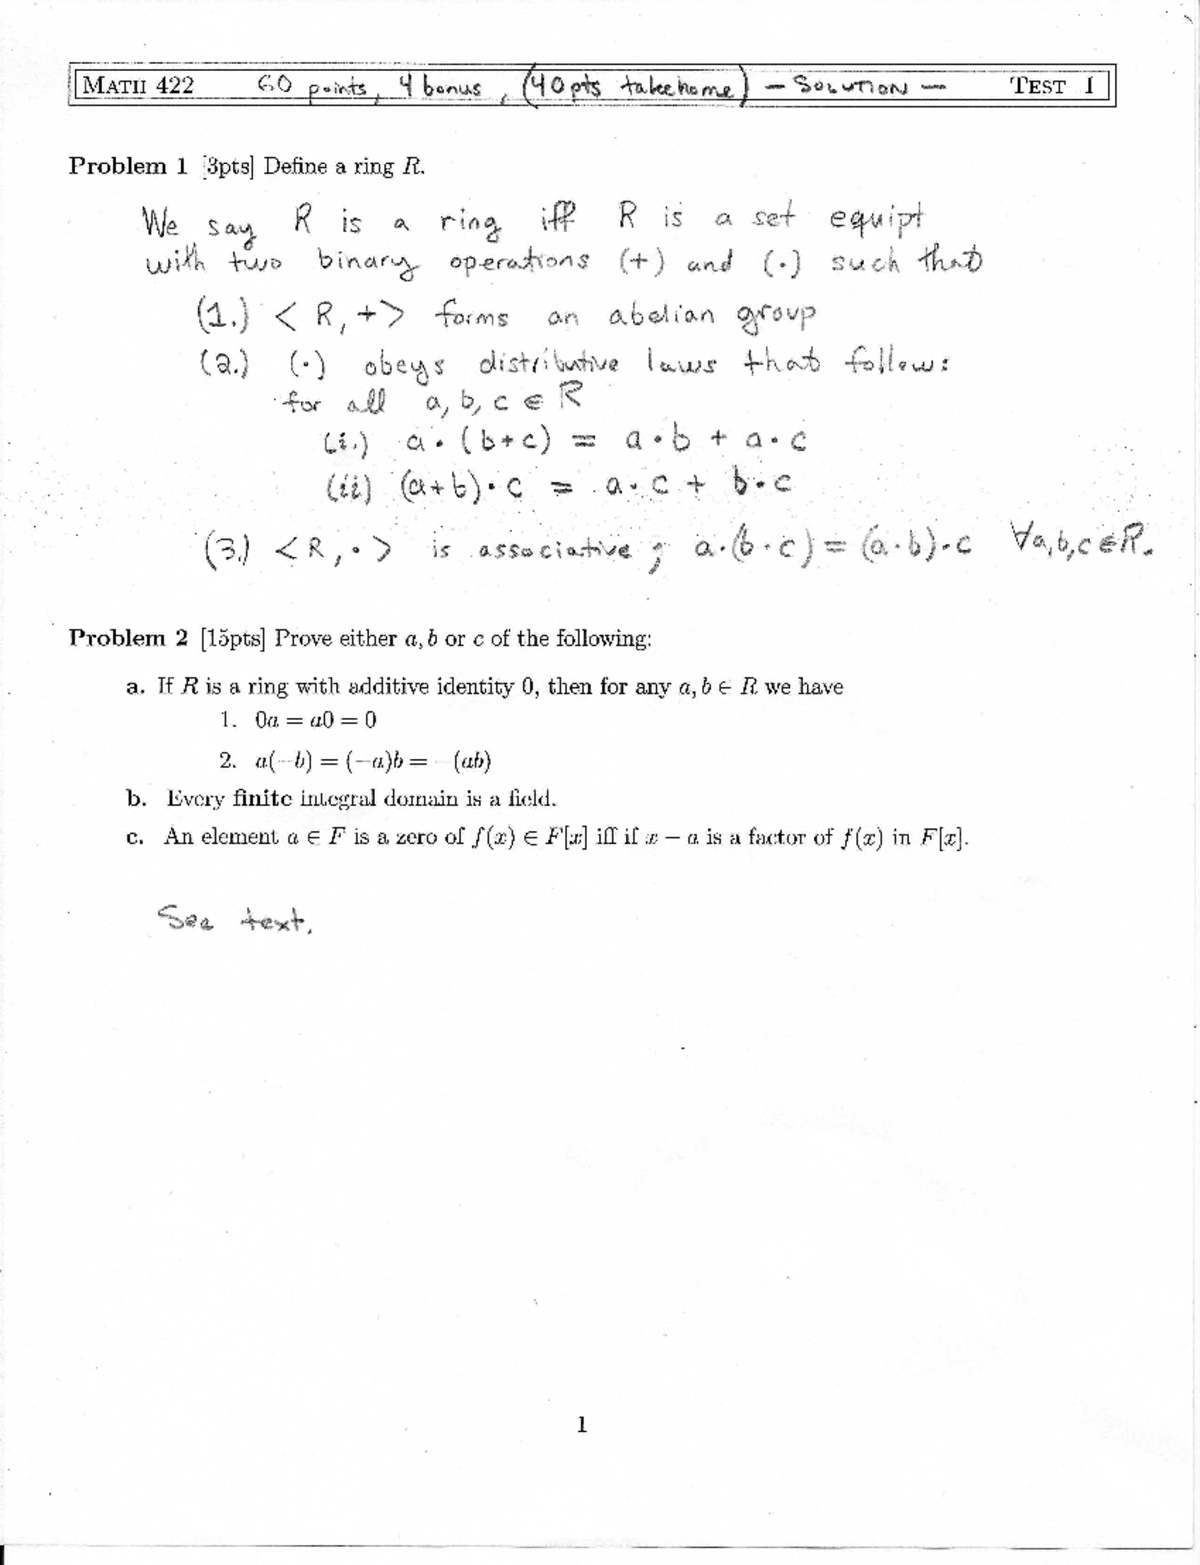 MATH 422 60 points, 4 bonus, (40pts takehome) — SOLUTION — TEST I
Problem 1 [3pts] Define a ring R.
We say R is a ring iff R is a set equipt
with two binary operations (+) and (·) such that
(1.) < R, +> forms an abelian group
(2.) (·) obeys distributive laws that follow:
for all a, b, c ∈ R
(i.) a · (b+c) = a · b + a · c
(ii) (a+b) · c = a · c + b · c
(3.) <R, · > is associative ; a·(b·c) = (a·b)·c ∀a,b,c ∈ R.
Problem 2 [15pts] Prove either a, b or c of the following:
a. If R is a ring with additive identity 0, then for any a, b ∈ R we have
1. 0a = a0 = 0
2. a(−b) = (−a)b = −(ab)
b. Every finite integral domain is a field.
c. An element a ∈ F is a zero of f(x) ∈ F[x] iff if x − a is a factor of f(x) in F[x].
See text.
1